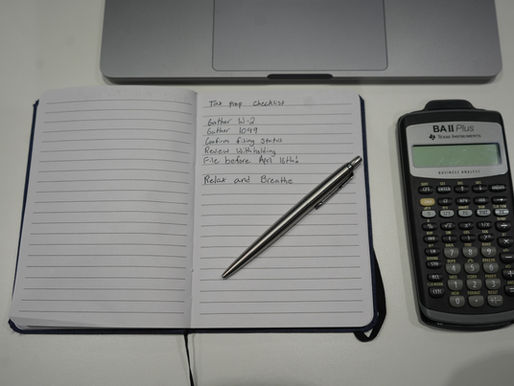 Tax prep checklist
Gather W-2
Gather 1099
Confirm filing status
Review Withholding
File before April 15th!
Relax and Breathe
BA II Plus
TEXAS INSTRUMENTS
BUSINESS ANALYST